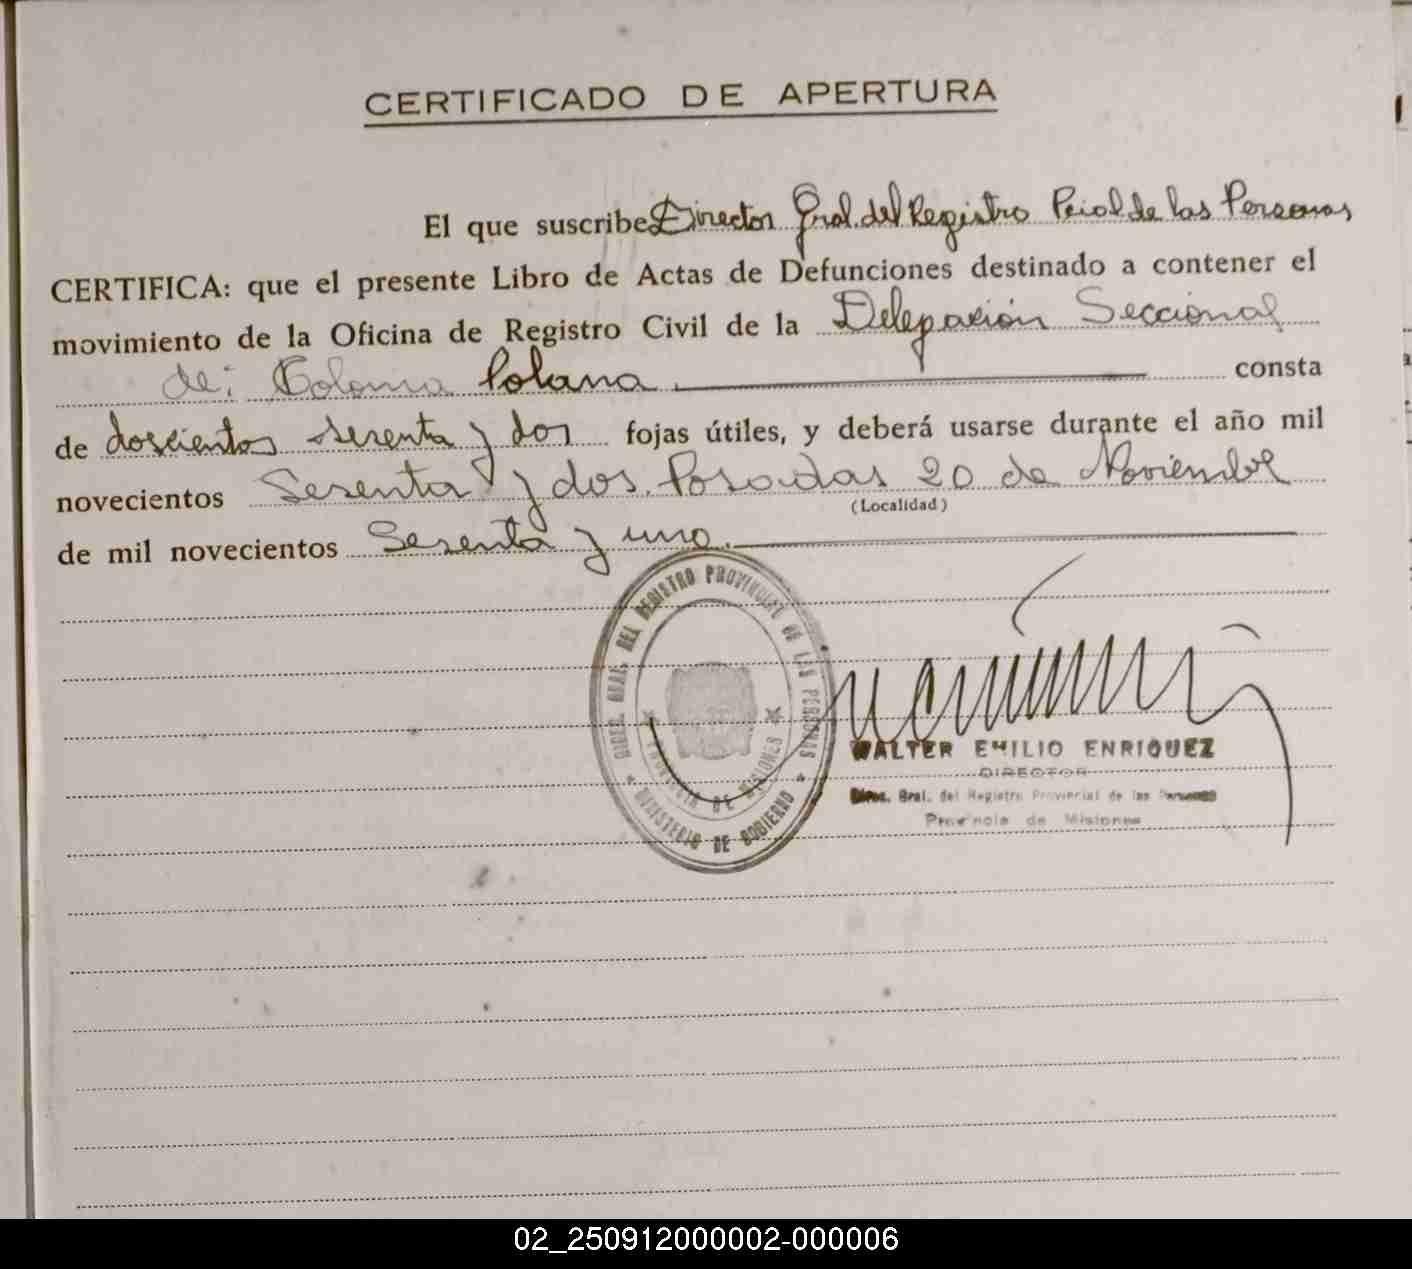 CERTIFICADO DE APERTURA
El que suscribe Director Gral. del Registro Pcial de las Personas,
CERTIFICA: que el presente Libro de Actas de Defunciones destinado a contener el
movimiento de la Oficina de Registro Civil de la Delegación Seccional
de: Colonia Polana consta
de doscientos sesenta y dos fojas útiles, y deberá usarse durante el año mil
novecientos Sesenta y dos. Posadas 20 de Noviembre
(Localidad)
de mil novecientos Sesenta y uno.
DIREC. GRAL. DEL REGISTRO PROVINCIAL DE LAS PERSONAS
PROVINCIA DE MISIONES
* MINISTERIO DE GOBIERNO *
WALTER EMILIO ENRIQUEZ
DIRECTOR
Direc. Gral. del Registro Provincial de las Personas
Provincia de Misiones
02_250912000002-000006